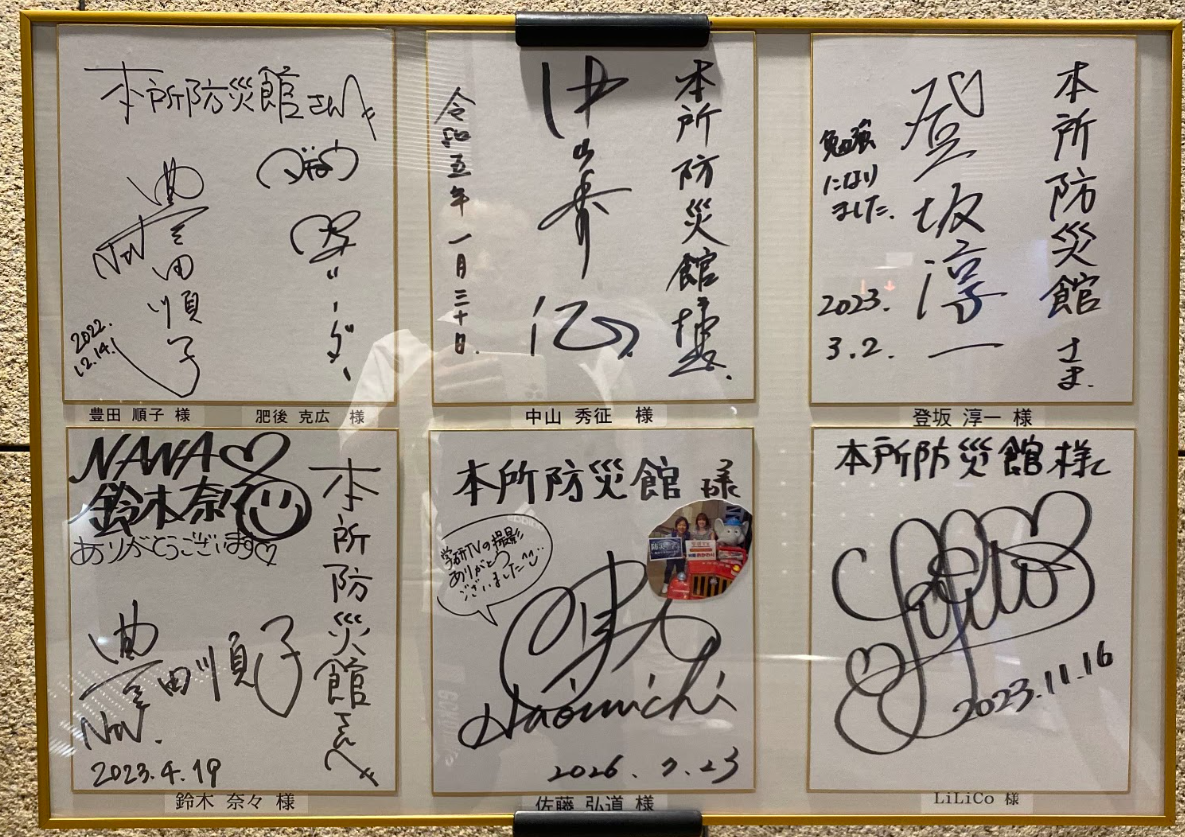 本所防災館さんへ
豊田順子
NTV
2022.
12.14.
リーダー
豊田 順子 様
肥後 克広 様
本所防災館様
中山秀征
令和五年一月三十日.
中山 秀征 様
本所防災館さま.
登坂淳一
勉強
になり
ました.
2023.
3.2.
登坂 淳一 様
NANA♡
鈴木奈々
ありがとうございます♡
本所防災館さんへ
豊田順子
NTV.
2023.4.19
鈴木 奈々 様
本所防災館 様
学研TVの撮影
ありがとう
ございました
弘
Hiromichi
2026.7.23
佐藤 弘道 様
本所防災館様
LiLiCo
2023.11.16
LiLiCo 様